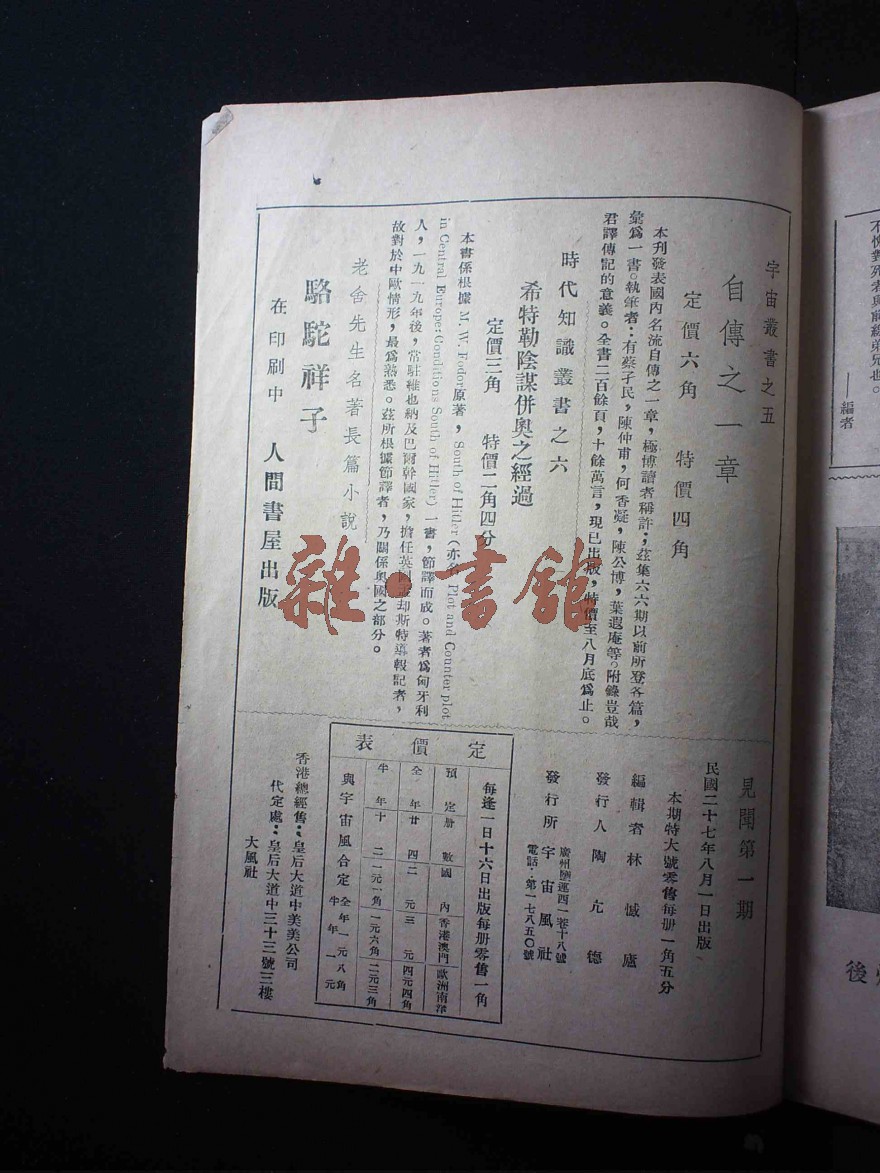 宇宙叢書之五
自傳之一章
定價六角 特價四角
本刊發表國內名流自傳之一章,極博讀者稱許;茲集六六期以前所登各篇,
彙爲一書。執筆者:有蔡孑民,陳仲甫,何香凝,陳公博,葉遐庵等。附錄豈哉
君譯傳記的意義。全書二百餘頁,十餘萬言,現已出版,特價至八月底爲止。
時代知識叢書之六
希特勒陰謀併奧之經過
定價三角 特價二角四分
本書係根據 M. W. Fodor原著,South of Hitler (亦名 Plot and Counter plot
in Central Europe: Conditions South of Hitler) 一書,節譯而成。著者爲匈牙利
人,一九一九年後,常駐維也納及巴爾幹國家,擔任英國孟却斯特導報記者,
故對於中歐情形,最爲熟悉。茲所根據節譯者,乃關係奧國之部分。
老舍先生名著長篇小說
駱駝祥子
在印刷中 人間書屋出版
見聞第一期
民國二十七年八月一日出版
本期特大號零售每册一角五分
編輯者 林憾廬
發行人 陶亢德
發行所 宇宙風社
廣州鹽運西一巷十八號
電話:第一七八五〇號
定價表
每逢一日十六日出版每册零售一角
預定 册數 國內 香港澳門 歐洲南洋
全年 廿四 二元 三元 四元四角
半年 十二 一元一角 一元六角 二元三角
與宇宙風合定 全年一元八角 半年一元
香港總經售:皇后大道中美美公司
代定處:皇后大道中三十三號三樓
大風社
不愧對死者與前線弟兄也。
——編者
後
雜·書館